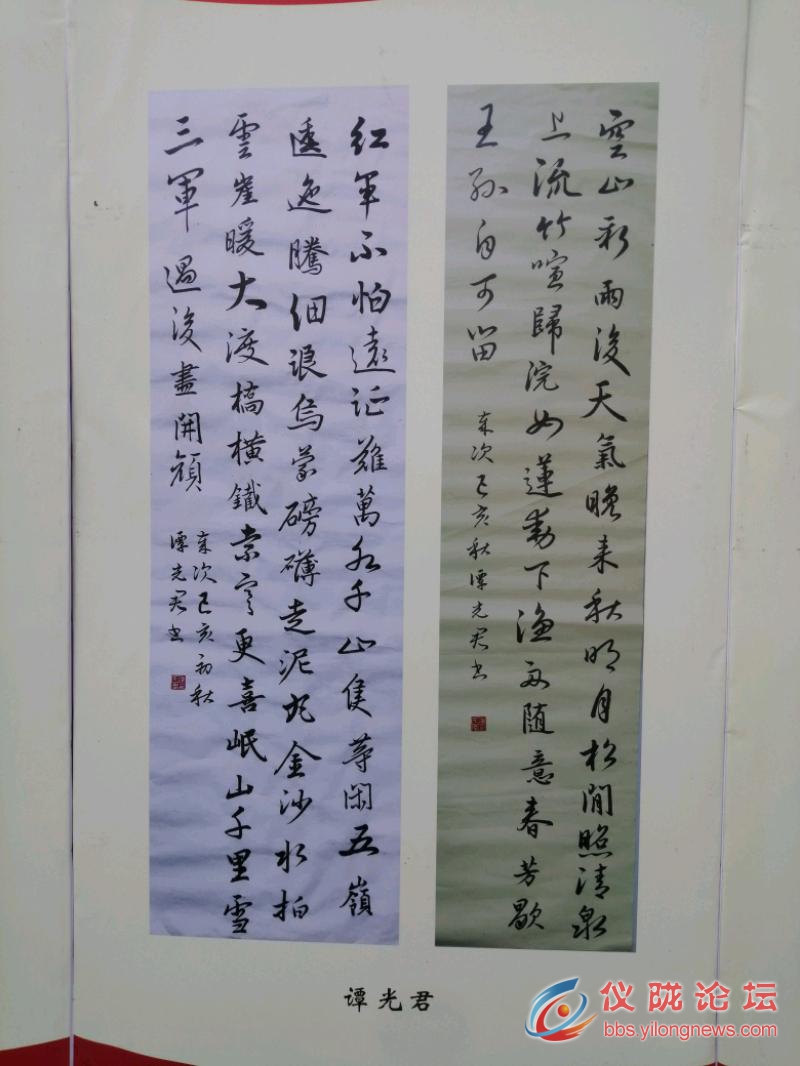 空山新雨後天氣晚来秋明月松間照清泉
上流竹喧歸浣女蓮動下渔舟随意春芳歇
王孙自可留
歲次己亥秋谭光君书
红军不怕遠征難萬水千山隻等闲五嶺
逶迤騰细浪乌蒙磅礴走泥丸金沙水拍
雲崖暖大渡橋横鐵索寒更喜岷山千里雪
三軍過後盡開顔
歲次己亥初秋
谭光君书
谭光君
仪陇论坛
bbs.yilongnews.com